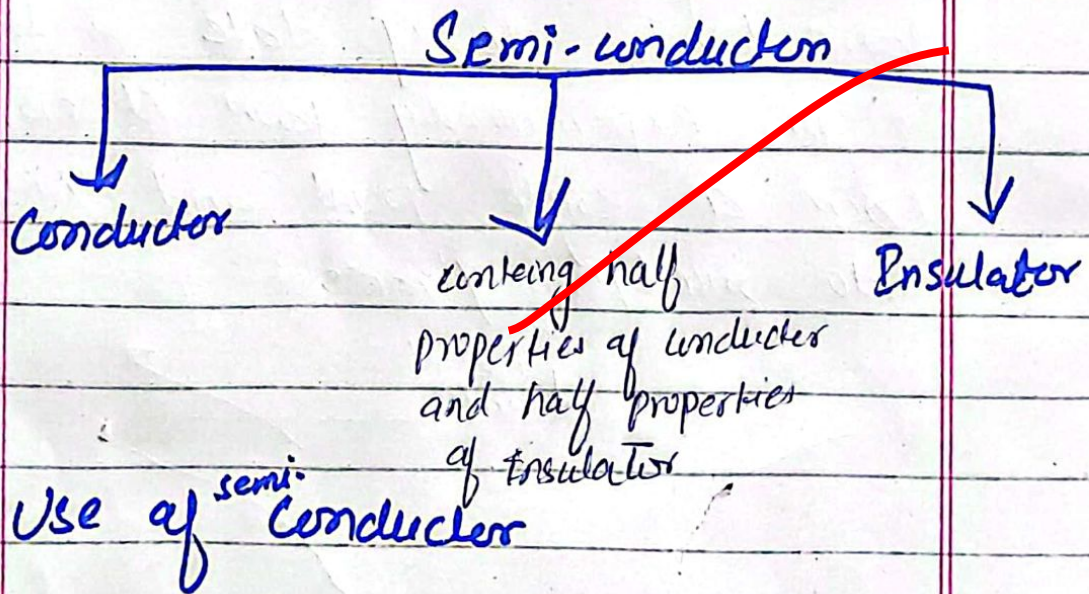 Semi-conductor
Conductor
conteing half
properties of conductor
and half properties
of Insulator
Insulator
Use of semi-conductor